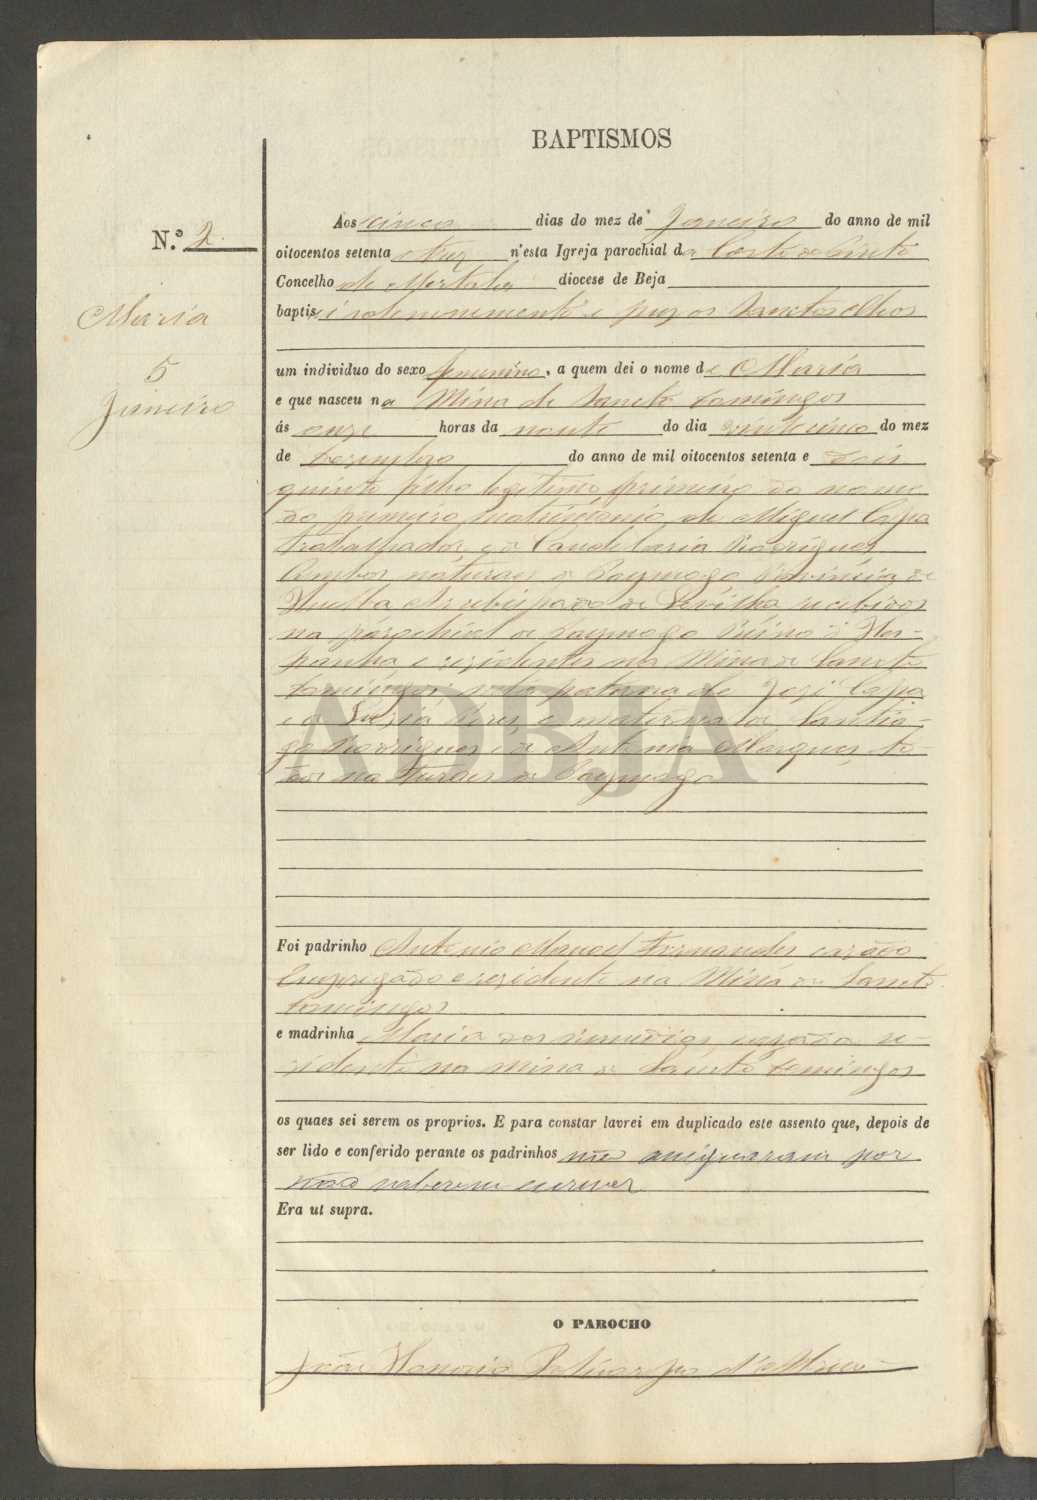 BAPTISMOS
N.º 2
Aos cinco dias do mez de Janeiro do anno de mil
oitocentos setenta e trez n'esta Igreja parochial da Corte do Pinto
Concelho de Mertola diocese de Beja
baptisei solemnemente e puz os Sanctos Oleos
Maria
5
Janeiro
um individuo do sexo femenino, a quem dei o nome de Maria
e que nasceu na Mina de Sancto Domingos
ás onze horas da noute do dia vinte cinco do mez
de Dezembro do anno de mil oitocentos setenta e dois
quinto filho legitimo primeiro do nome
do primeiro matrimonio de Miguel Capa
trabalhador e de Candelaria Rodrigues
Ambos naturaes de Paymogo Provincia de
Huelba Arcebispado de Sevilha recebidos
na parochial de Paymogo Reino de Hes-
panha e rezidentes na Mina de Sancto
Domingos neta paterna de Jozé Capa
e de Peres e materna de Santia-
go Rodrigues e de Antonia Marques to-
dos naturaes de Paymogo
ADBJA
Foi padrinho Antonio Manoel Fernandes cazado
Empregado e rezidente na Mina de Sancto
Domingos
e madrinha Maria dos Remedios cazada re-
zidente na mina de Sancto Domingos
os quaes sei serem os proprios. E para constar lavrei em duplicado este assento que, depois de
ser lido e conferido perante os padrinhos não assignaram por
não saberem escrever
Era ut supra.
O PAROCHO
João Honorio